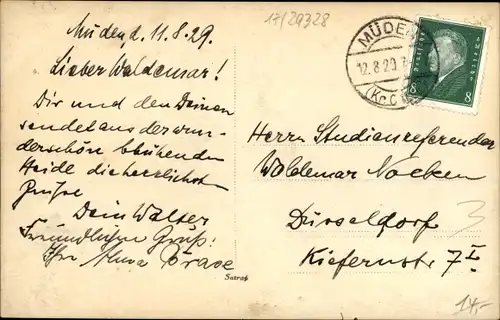 Müden, d. 11.8.29.
Lieber Waldemar!
Dir und den Deinen
sendet aus der wun-
derschön blühenden
Heide die herzlichsten
Grüße
Dein Walter
Freundlichen Gruß!
Ihr
17/29328
MÜDEN
12.8.29.7
(Kr. C
DEUTSCHES REICH
8 8
Herrn Studienreferendar
Waldemar Nocken
Düsseldorf
Kiefernstr 7 I
Satrap
3
14,-